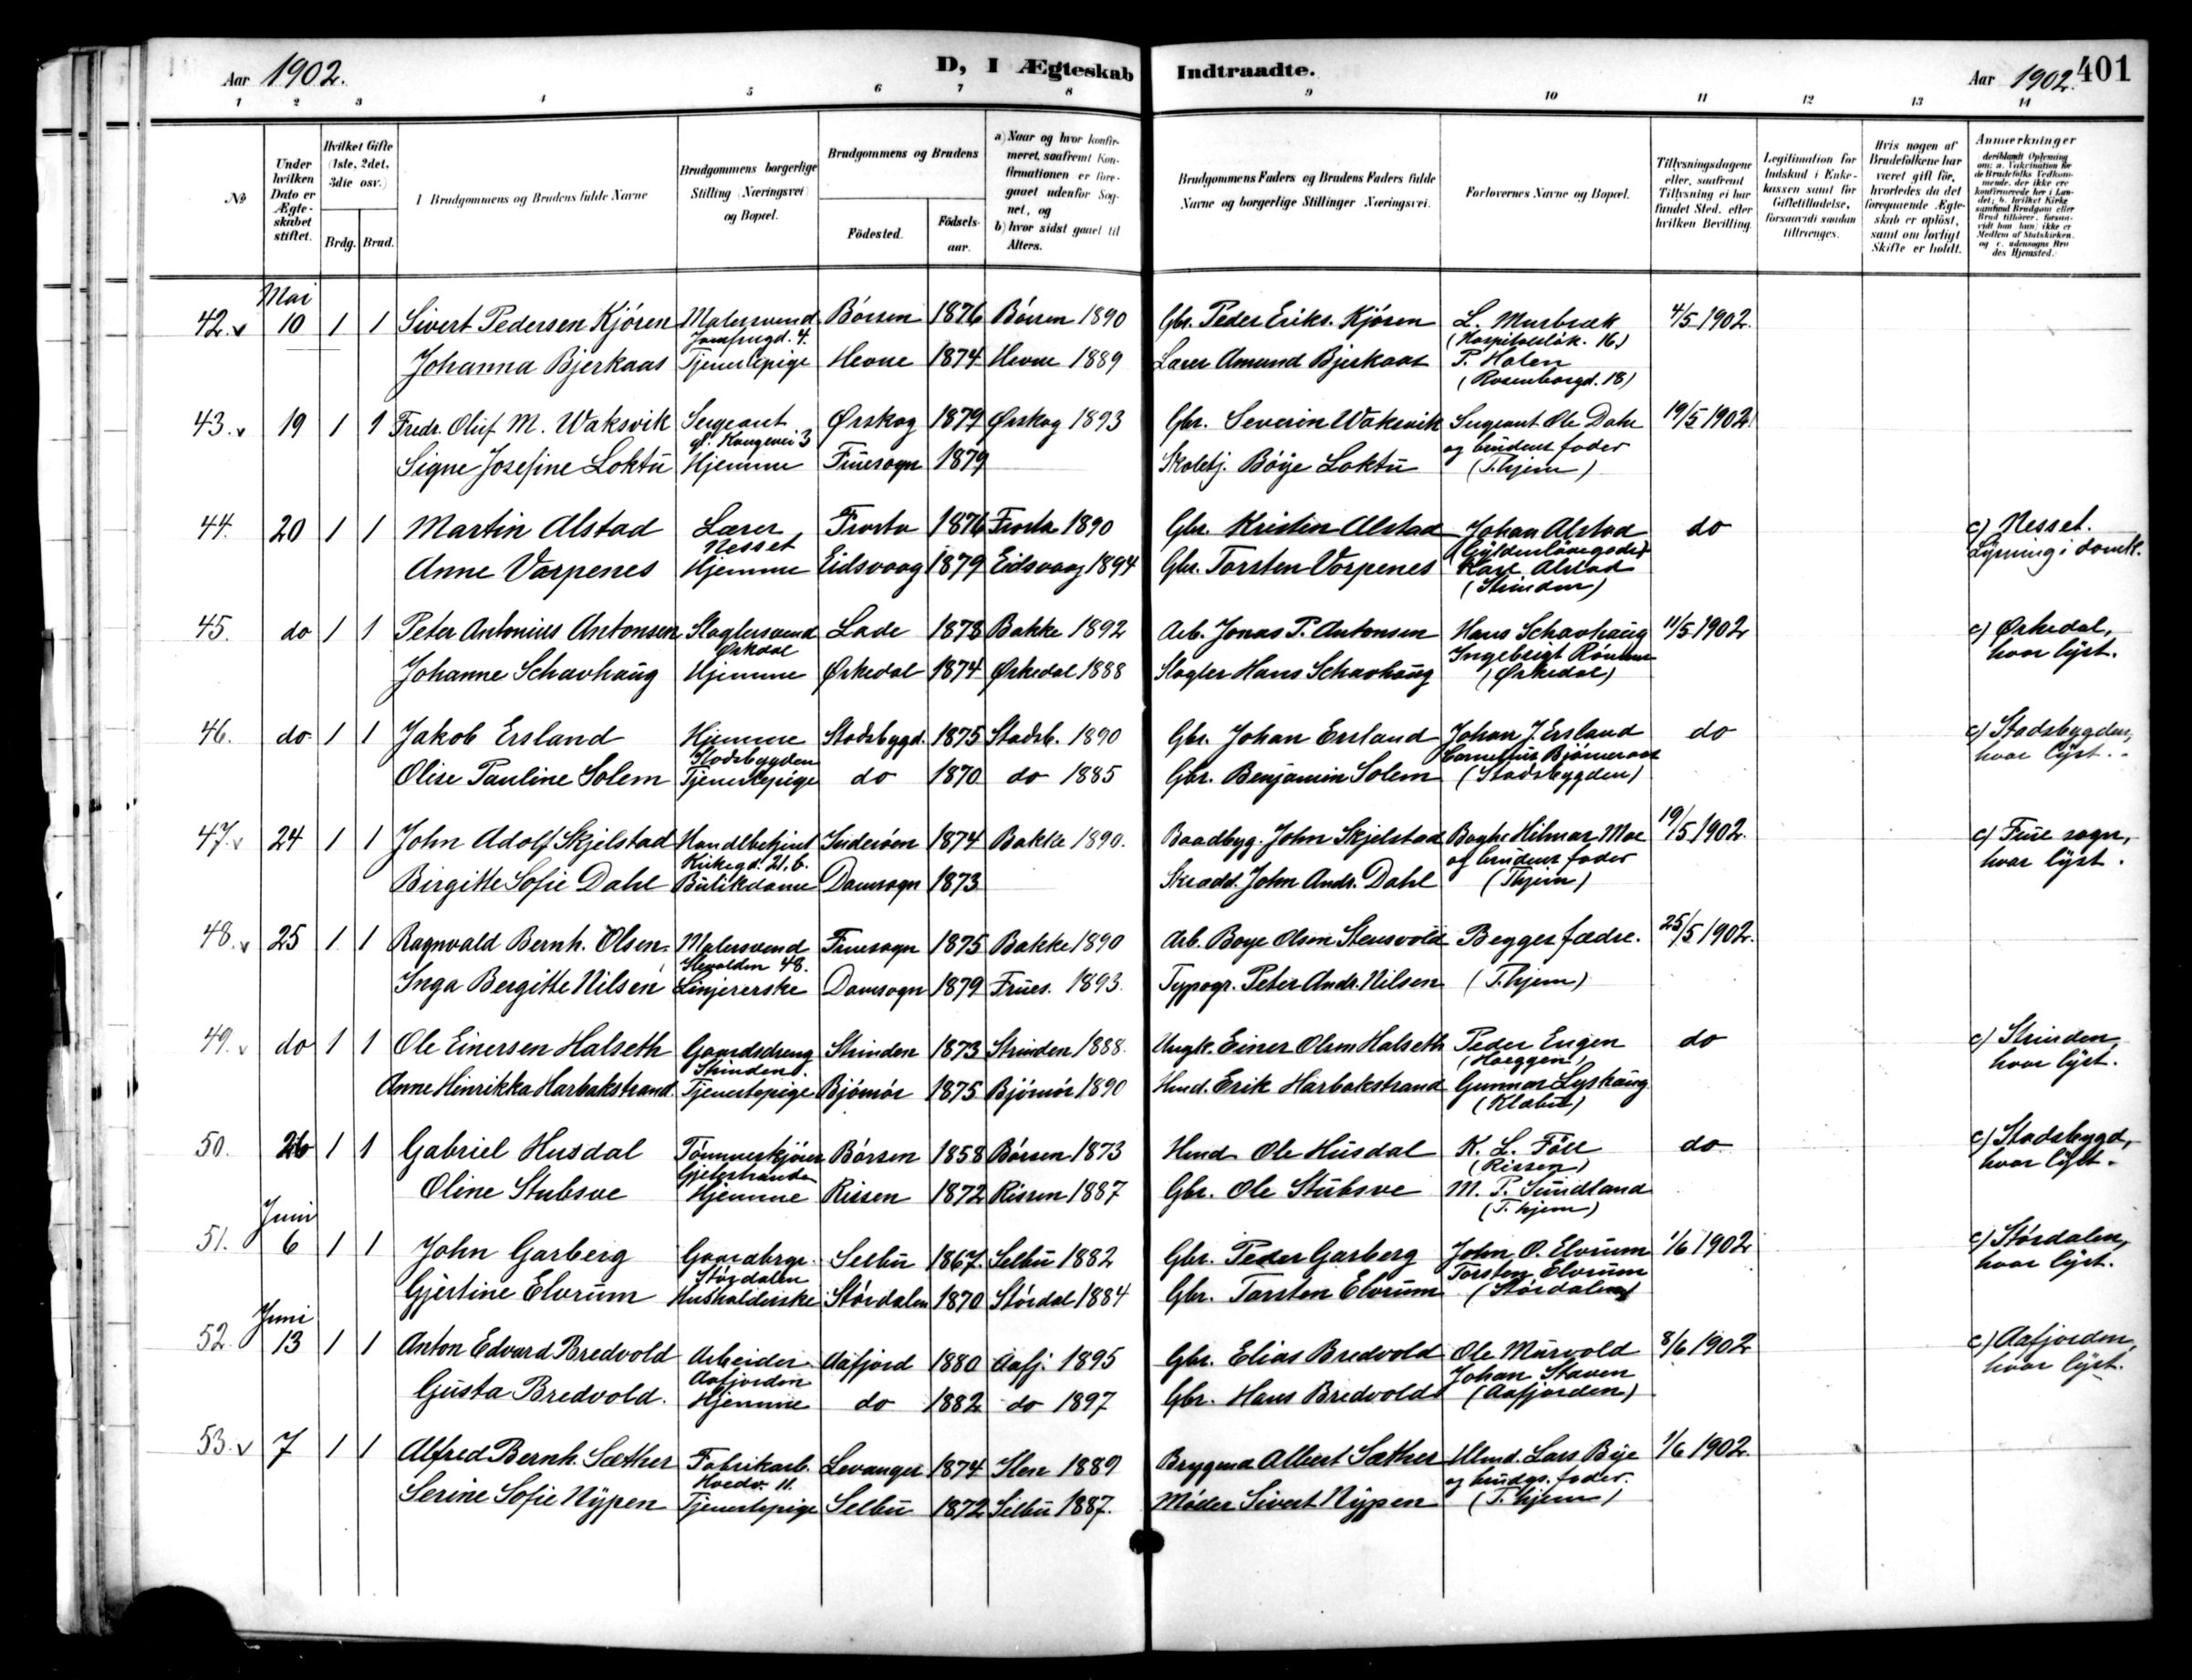 Aar 1902.
D, I Ægteskab Indtraadte.
Aar 1902. 401
1 2 3 4 5 6 7 8 9 10 11 12 13 14
№
Under hvilken Dato er Ægteskabet stiftet.
Hvilket Gifte (1ste, 2det, 3die osv.)
Brdg. Brud.
Brudgommens og Brudens fulde Navne
Brudgommens borgerlige Stilling (Næringsvei) og Bopæl.
Brudgommens og Brudens
Födested. Födselsaar.
a) Naar og hvor konfirmeret, saafremt Konfirmationen er foregaaet udenfor Sognet, og
b) hvor sidst gaaet til Alters.
Brudgommens Faders og Brudens Faders fulde Navne og borgerlige Stillinger Næringsvei.
Forlovernes Navne og Bopæl.
Tillysningsdagene eller, saafremt Tillysning ei har fundet Sted, efter hvilken Bevilling.
Legitimation for Indskud i Enkekassen samt for Giftetilladelse, forsaavidt saadan tiltrænges.
Hvis nogen af Brudefolkene har været gift för, hvorledes da det foregaaende Ægteskab er oplöst, samt om lovligt Skifte er holdt.
Anmærkninger
deriblandt Oplysning om: a. Vakcination for de Brudefolks Vedkommende, der ikke ere konfirmerede her i Landet; b. hvilket Kirkesamfund Brudgom eller Brud tilhörer, forsaavidt han (hun) ikke er Medlem af Statskirken, og c. udensogns Brudes Hjemsted.
Mai
42. v 10 1 1 Sivert Pedersen Kjören Malersvend Börsen 1876 Börsen 1890 Gbr. Peder Eriks. Kjören L. Murbræk 4/5 1902.
Jomfrugd. 4. (Hospitalslök. 16)
Johanna Bjerkaas Tjenestepige Hevne 1874 Hevne 1889 Lærer Amund Bjerkaas P. Holen
(Rosenborgd. 18)
43. v 19 1 1 Fredr. Oluf M. Waksvik Sergeant Ørskog 1879 Ørskog 1893 Gbr. Severin Waksvik Sergeant Ole Dahl 19/5 1902.
gl. Kongevei 3 og brudens fader
Signe Josefine Loktu Hjemme Fruesogn 1879 Skoletj. Böye Loktu (T.hjem)
44. 20 1 1 Martin Alstad Lærer Frosta 1876 Frosta 1890 Gbr. Kristen Alstad Johan Alstad do c) Nesset.
Nesset (Gyldenlövesgade) Lysning i domk.
Anne Varpenes Hjemme Eidsvaag 1879 Eidsvaag 1894 Gbr. Torsten Varpenes Karl Alstad
(Strinden)
45. do 1 1 Peter Antonius Antonsen Slagtersvend Lade 1878 Bakke 1892 Arb. Jonas P. Antonsen Hans Schavhaug 11/5 1902 c) Ørkedal,
Orkdal Ingebrigt hvor lyst.
Johanne Schavhaug Hjemme Ørkedal 1874 Ørkedal 1888 Slagter Hans Schavhaug (Ørkedal)
46. do 1 1 Jakob Ersland Hjemme Stadsbygd. 1875 Stadsb. 1890 Gbr. Johan Ersland Johan J. Ersland do c) Stadsbygden,
Stadsbygden Cornelius Bjørneraas hvor lyst.
Olise Pauline Solem Tjenestepige do 1870 do 1885 Gbr. Benjamin Solem (Stadsbygden)
47. v 24 1 1 John Adolf Skjelstad Handlbetjent Inderöen 1874 Bakke 1890. Baadbyg. John Skjelstad Baghr. Hilmar Moe 19/5 1902. c) Frue sogn,
Kirkegd. 21. b. og brudens fader hvor lyst.
Birgitte Sofie Dahl Butikdame Domsogn 1873 Skradd. John Andr. Dahl (Thjem)
48. v 25 1 1 Ragnvald Bernh. Olsen Malersvend Fruesogn 1875 Bakke 1890 Arb. Boye Olsen Stensvold Begges fædre. 25/5 1902.
Ilevolden 48.
Inga Bergitte Nilsen Linjererske Domsogn 1879 Frues. 1893. Typogr. Peter Andr. Nilsen (T.hjem)
49. v do 1 1 Ole Einersen Halseth Gaardsdreng Strinden 1873 Strinden 1888. Ungk. Einer Olsen Halseth Peder Engen do c) Strinden,
Strinden. (Hoeggen) hvor lyst.
Anne Hinrikka Harbakstrand Tjenestepige Bjömör 1875 Bjömör 1890 Hmd. Erik Harbakstrand Gunnar Lyshaug
(Klæbu)
50. 26 1 1 Gabriel Husdal Tömmerkjörer Börsen 1858 Börsen 1873 Hmd Ole Husdal K. L. Föll do c) Stadsbygd,
Gjetestranden (Rissen) hvor lyst.
Oline Stubsve Hjemme Rissen 1872 Rissen 1887 Gbr. Ole Stubsve M. P. Sundland
(T.hjem)
Juni
51. 6 1 1 John Garberg Gaardbrgr. Selbu 1867. Selbu 1882 Gbr. Peder Garberg John O. Elvrum 1/6 1902 c) Stördalen,
Stördalen Torsten Elvrum hvor lyst.
Gjertine Elvrum Husholderske Stördalen 1870 Stördal 1884 Gbr. Torsten Elvrum (Stördalen)
Juni
52. 13 1 1 Anton Edvard Bredvold Arbeider Aafjord 1880 Aafj. 1895 Gbr. Elias Bredvold Ole Murvold 8/6 1902 c) Aafjorden,
Aafjorden Johan Staven hvor lyst.
Gusta Bredvold. Hjemme do 1882 do 1897 Gbr. Hans Bredvold (Aafjorden)
53. v 7 1 1 Alfred Bernh. Sæther Fabrikarb. Levanger 1874 Ilen 1889 Brygmd Albert Sæther Hmd. Lars Bye 1/6 1902.
11. og brudgs. fader.
Serine Sofie Nypen Tjenestepige Selbu 1872 Selbu 1887. Möller Sivert Nypen (T.hjem)